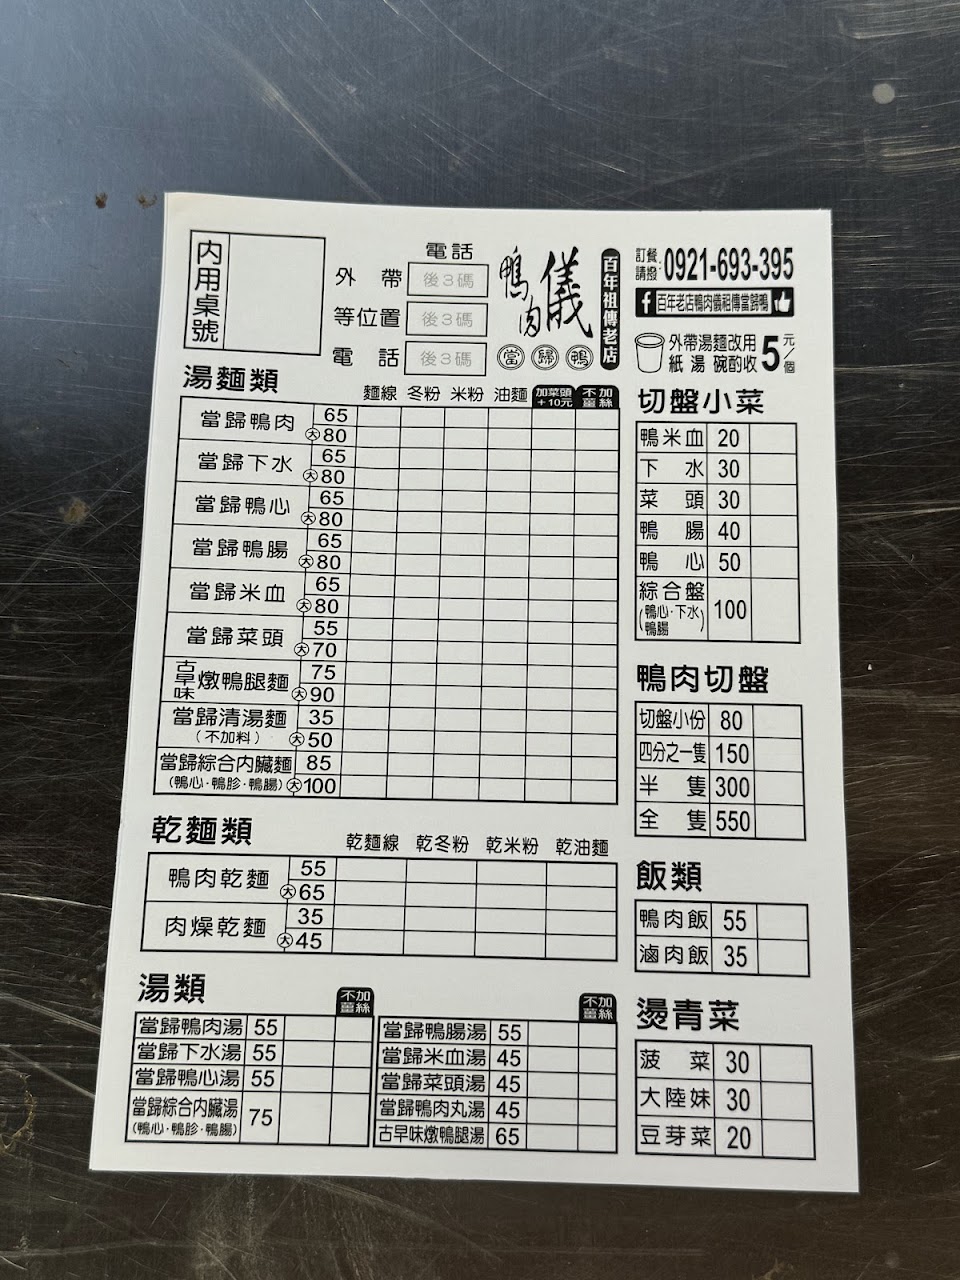 內用桌號
電話
外帶 後3碼
等位置 後3碼
電話 後3碼
鴨肉儀
當歸鴨
百年祖傳老店
訂餐請撥 0921-693-395
百年老店鴨肉儀祖傳當歸鴨
外帶湯麵改用
紙湯碗酌收 5元/個
湯麵類
麵線 冬粉 米粉 油麵 加菜頭+10元 不加薑絲
當歸鴨肉 65
大80
當歸下水 65
大80
當歸鴨心 65
大80
當歸鴨腸 65
大80
當歸米血 65
大80
當歸菜頭 55
大70
古早味燉鴨腿麵 75
大90
當歸清湯麵 35
(不加料) 大50
當歸綜合內臟麵 85
(鴨心·鴨胗·鴨腸) 大100
乾麵類
乾麵線 乾冬粉 乾米粉 乾油麵
鴨肉乾麵 55
大65
肉燥乾麵 35
大45
湯類
不加薑絲
當歸鴨肉湯 55
當歸下水湯 55
當歸鴨心湯 55
當歸綜合內臟湯 75
(鴨心·鴨胗·鴨腸)
不加薑絲
當歸鴨腸湯 55
當歸米血湯 45
當歸菜頭湯 45
當歸鴨肉丸湯 45
古早味燉鴨腿湯 65
切盤小菜
鴨米血 20
下水 30
菜頭 30
鴨腸 40
鴨心 50
綜合盤 100
(鴨心·下水
鴨腸)
鴨肉切盤
切盤小份 80
四分之一隻 150
半隻 300
全隻 550
飯類
鴨肉飯 55
滷肉飯 35
燙青菜
菠菜 30
大陸妹 30
豆芽菜 20